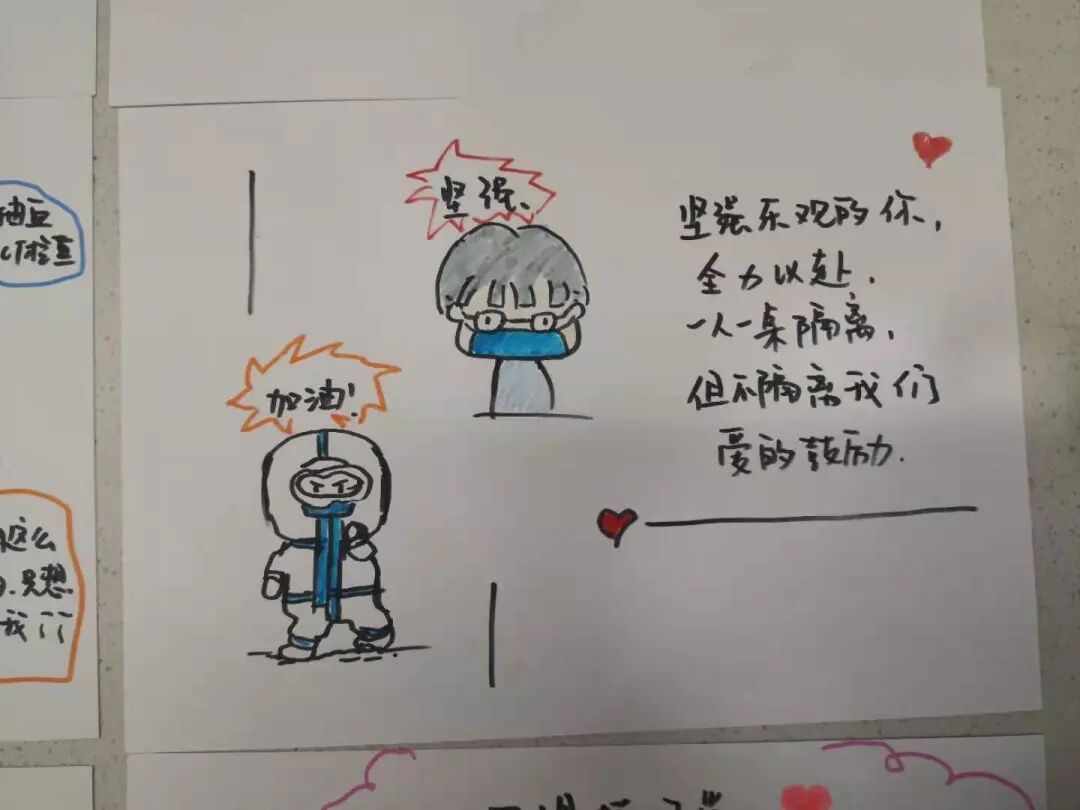 坚强、
加油!
坚强乐观的你,
全力以赴.
一人一桌隔离,
但不隔离我们
爱的鼓励.
这么
只想
我们